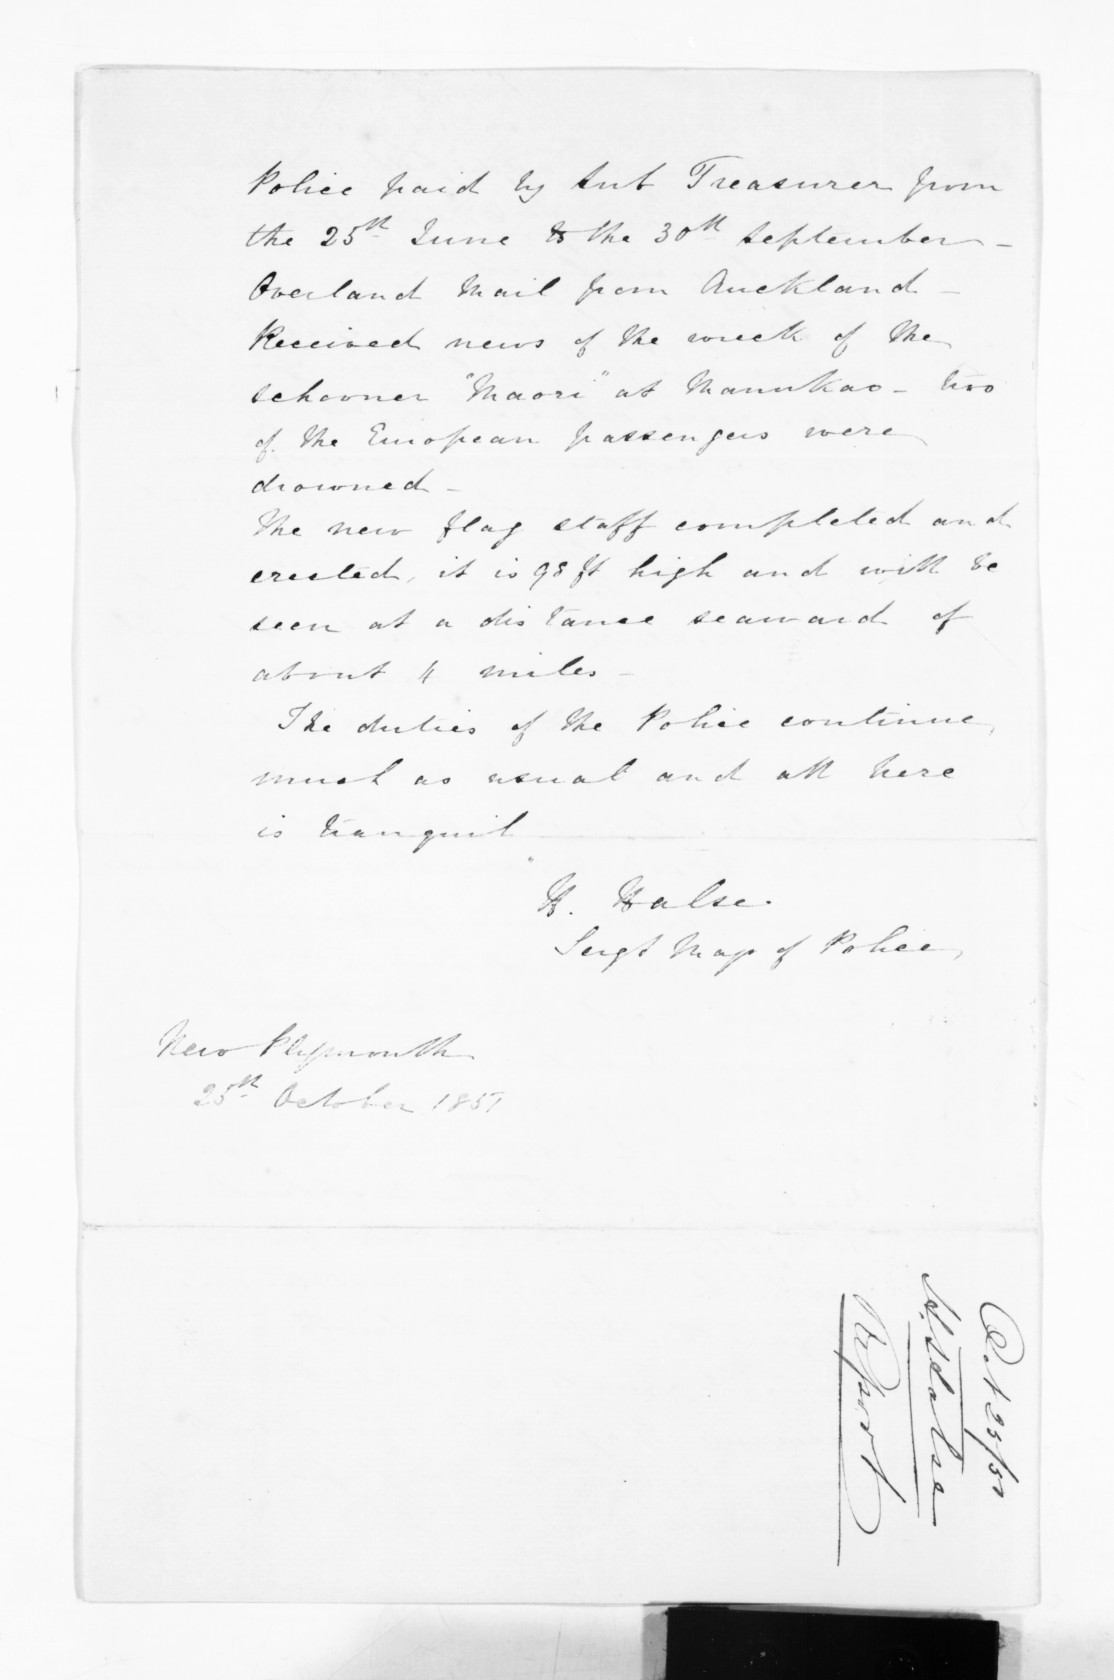 Police paid by Sub Treasurer from
the 25th June to the 30th September -
Overland Mail from Auckland -
Received news of the wreck of the
schooner "Maori" at Manukao - two
of the European passengers were
drowned -
The new flag staff completed and
erected, it is 98 ft high and will be
seen at a distance seaward of
about 4 miles -
The duties of the Police continue
much as usual and all here
is tranquil
H. Halse.
Sergt Maj of Police
New Plymouth
25th October 1851
Oct 25/51
H. Halse
Report